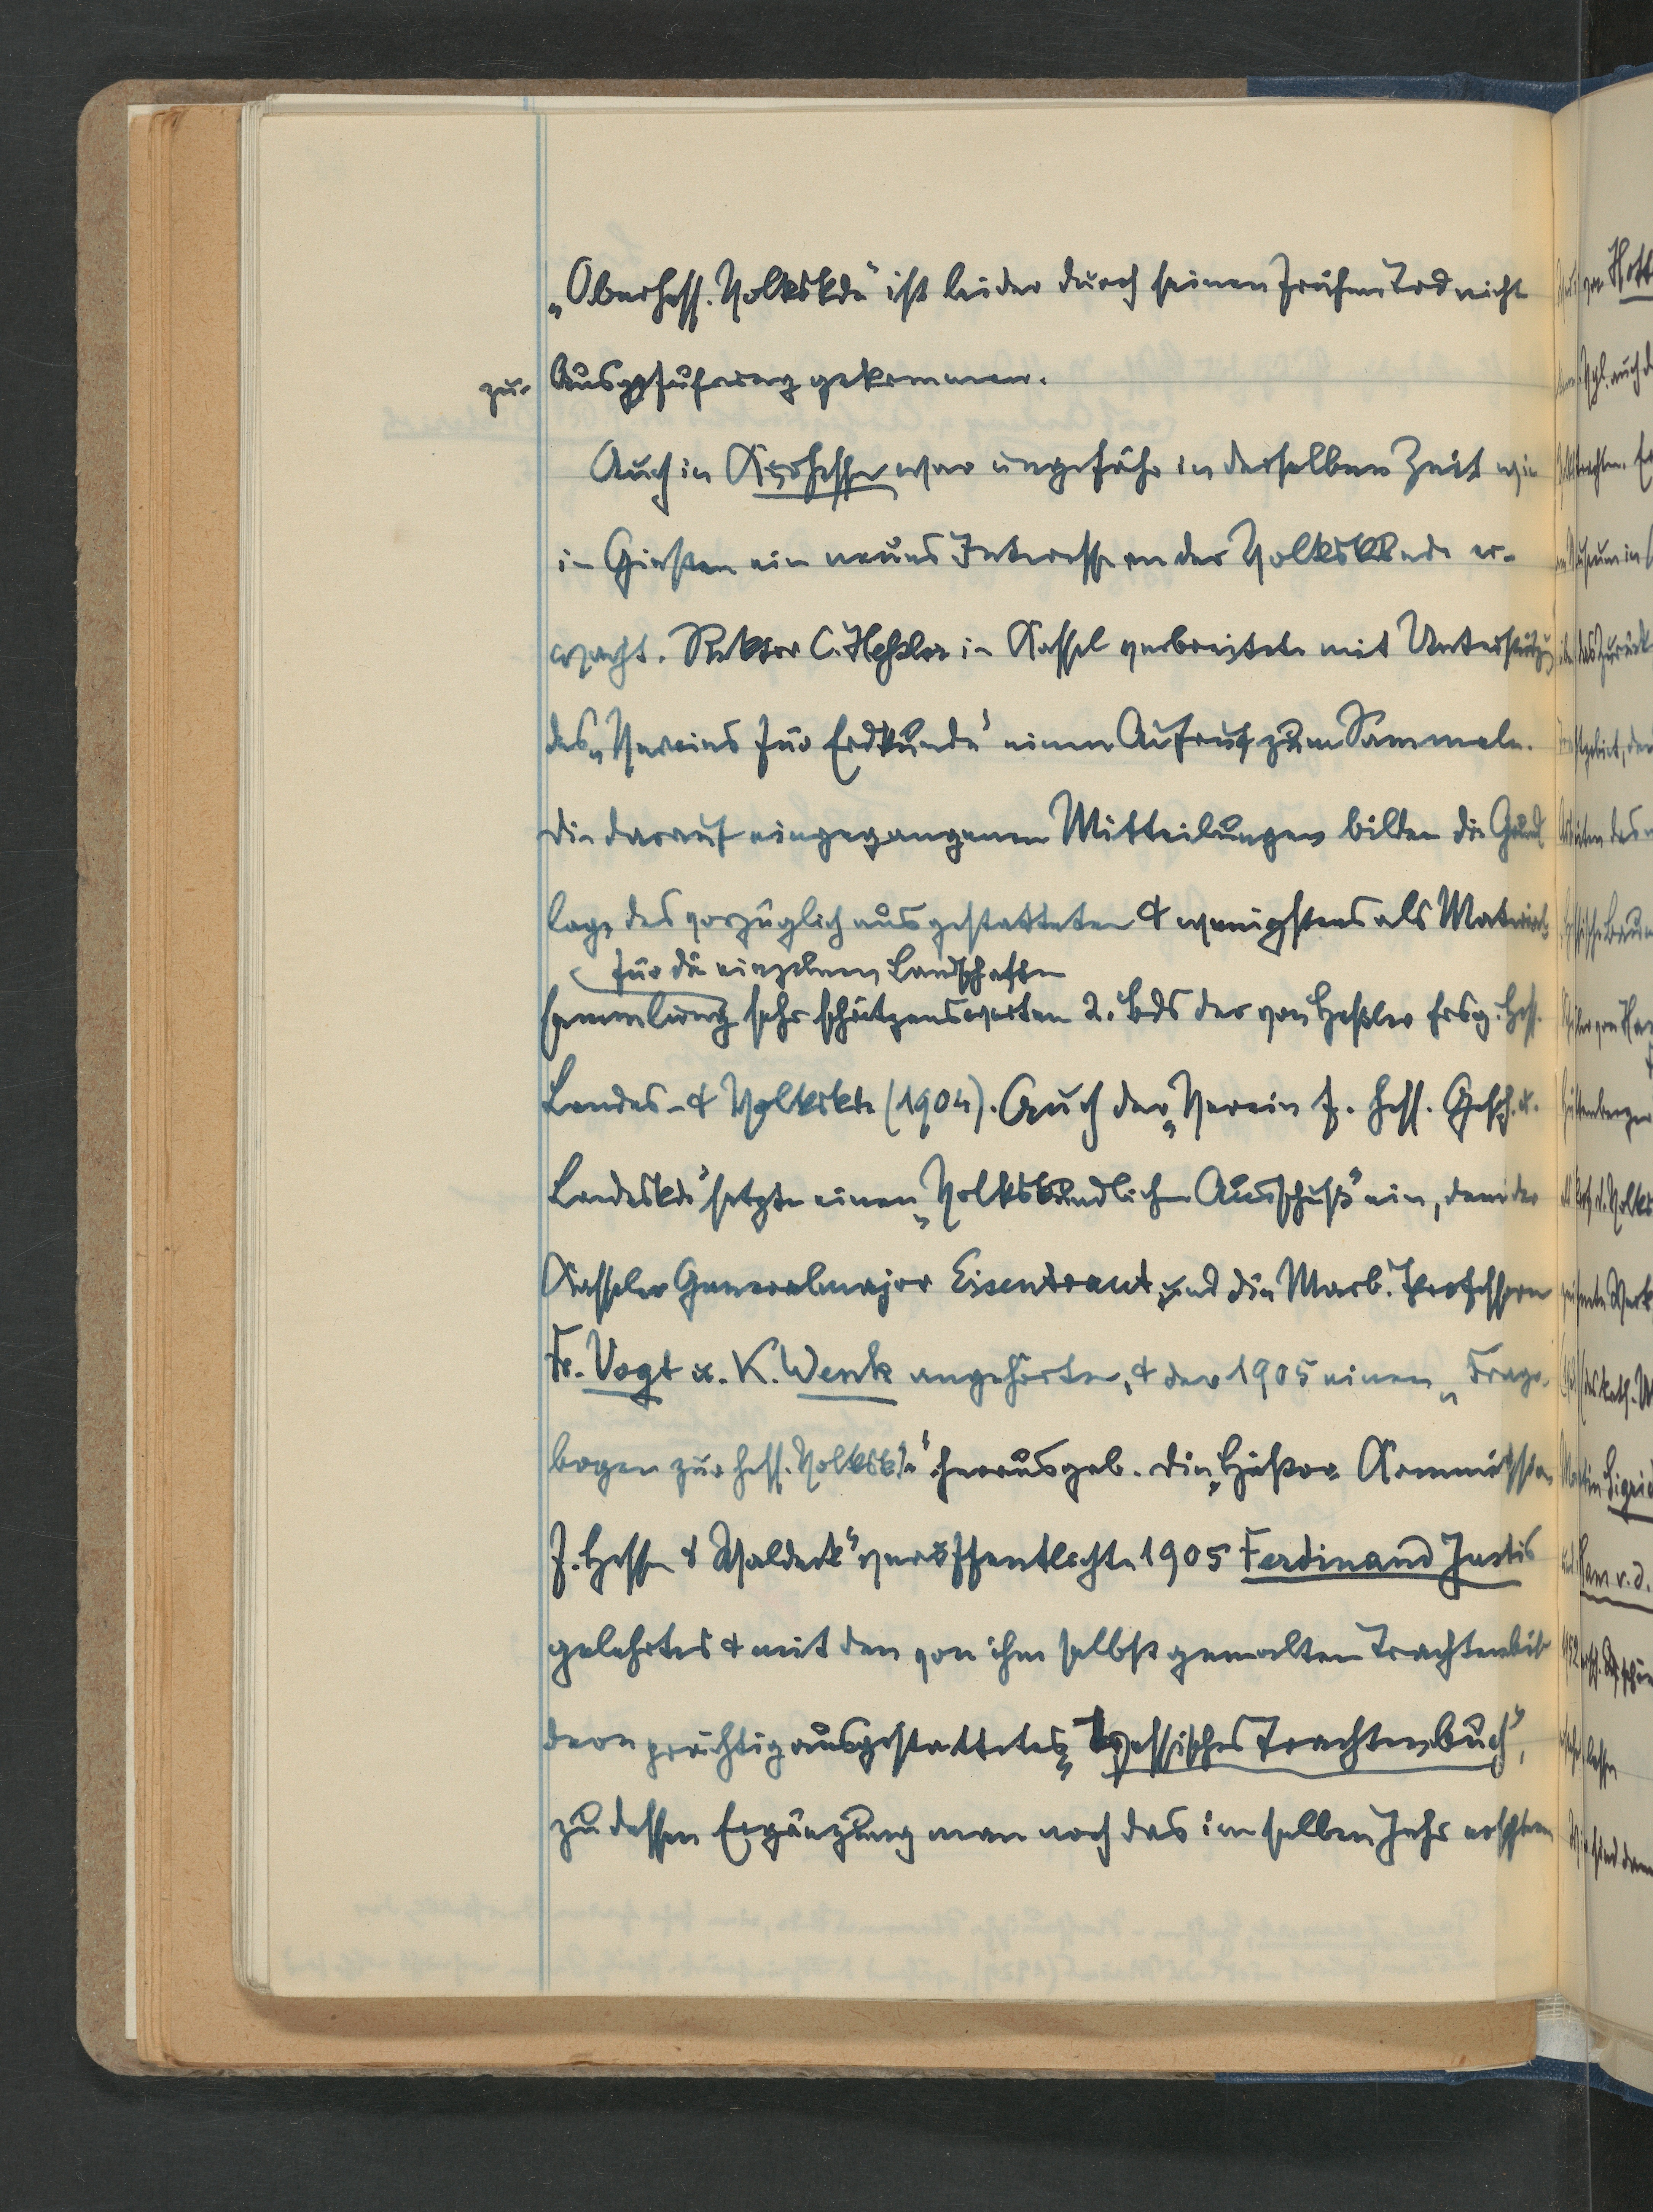 „Oberhess. Volkskde“ ist leider durch seinen frühen Tod nicht
zur Ausführung gekommen.
Auch in Kurhessen war ungefähr in derselben Zeit wie
in Gießen ein neues Interesse an der Volkskunde er-
wacht. Rektor C. Heßler in Kassel verbreitete mit Unterstützg
des „Vereins für Erdkunde“ einen Aufruf zum Sammeln.
Die darauf eingegangenen Mitteilungen bilden die Grund
lage des vorzüglich ausgestatteten & wenigstens als Material
für die einzelnen Landschaften
sammlung sehr schätzenswerten 2. Bds der von Heßler hrsg. Hess.
Landes- & Volkskde (1904). Auch der „Verein f. hess. Gesch. u.
Landeskde“ setzte einen „Volkskundlichen Ausschuß“ ein, dem der
Kasseler Generalmajor Eisentraut und die Marb. Professoren
Fr. Vogt u. K. Wenk angehörten, & der 1905 einen „Frage-
bogen zur hess. Volkskde“ herausgab. Die „Histor. Kommission
f. Hessen & Waldeck“ veröffentlichte 1905 Ferdinand Justis
gelehrtes & mit den von ihm selbst gemalten Trachtenbil
dern prächtig ausgestattetes „Hessisches Trachtenbuch“,
zu dessen Ergänzung man noch das im selben Jahr erschien